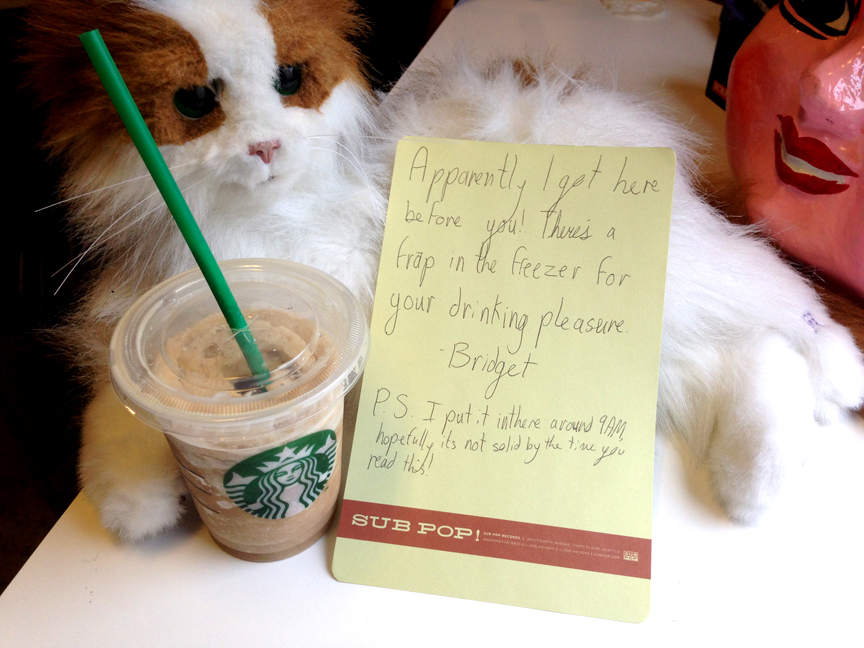 Apparently I got here
before you! There's a
frap in the freezer for
your drinking pleasure.
-Bridget
P.S. I put it in there around 9AM,
hopefully its not solid by the time you
read this!
SUB POP!
SUB POP RECORDS
SUB
POP